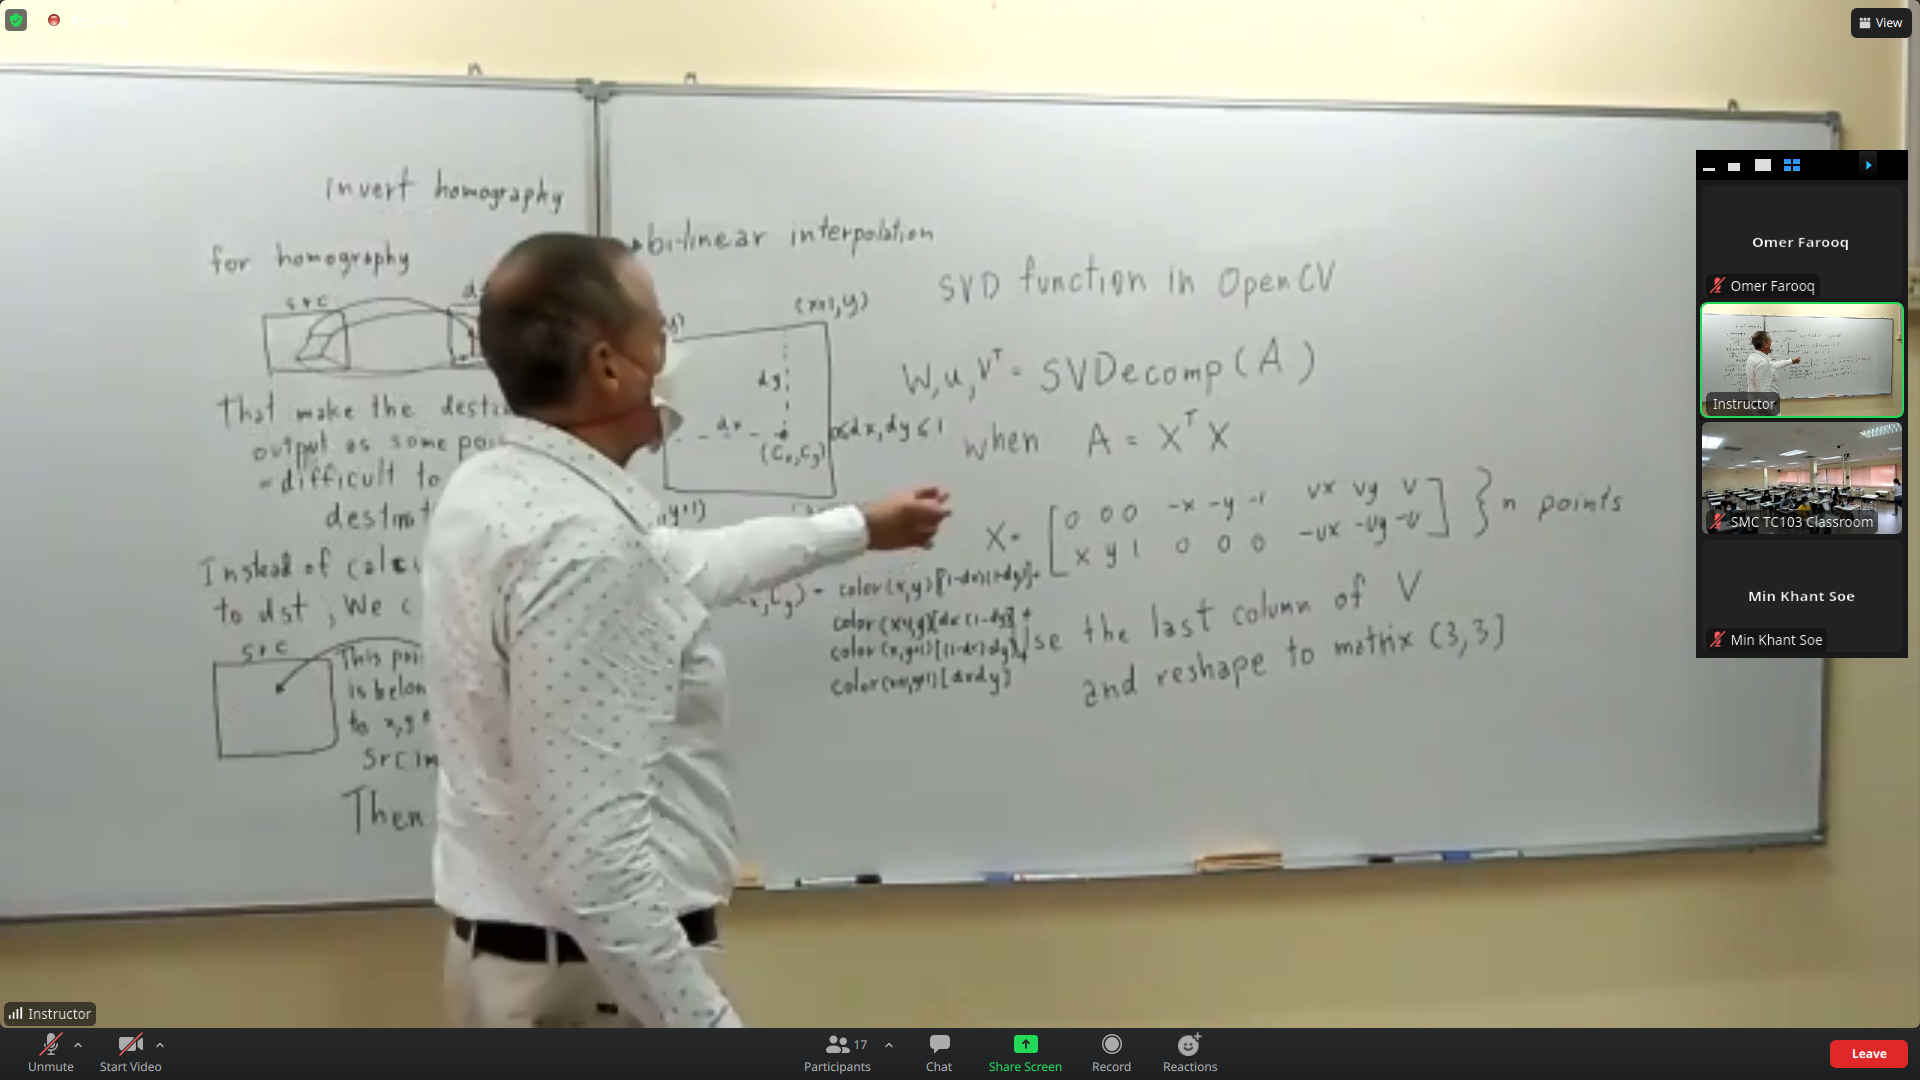 View
invert homography
for homography
src
That make the
output as some
- difficult to
Instead of
to dst , We
src
This
is
to x,y
Then
bi-linear interpolation
(x+1,y)
dy
dx
(Cx,Cy)
0≤dx,dy≤1
color(x,y)[(1-dx)(1-dy)]+
color(x+1,y)[dx(1-dy)] +
color(x,y+1)[(1-dx)dy]+
color(x+1,y+1)[dxdy]
SVD function in OpenCV
W,u,Vᵀ = SVDecomp(A)
when A = XᵀX
X = [ 0 0 0 -x -y -1 vx vy v ] } n points
x y 1 0 0 0 -ux -uy -u
the last column of V
and reshape to matrix (3,3)
Omer Farooq
Omer Farooq
Instructor
SMC TC103 Classroom
Min Khant Soe
Min Khant Soe
Instructor
Unmute
Start Video
17
Participants
Chat
Share Screen
Record
Reactions
Leave